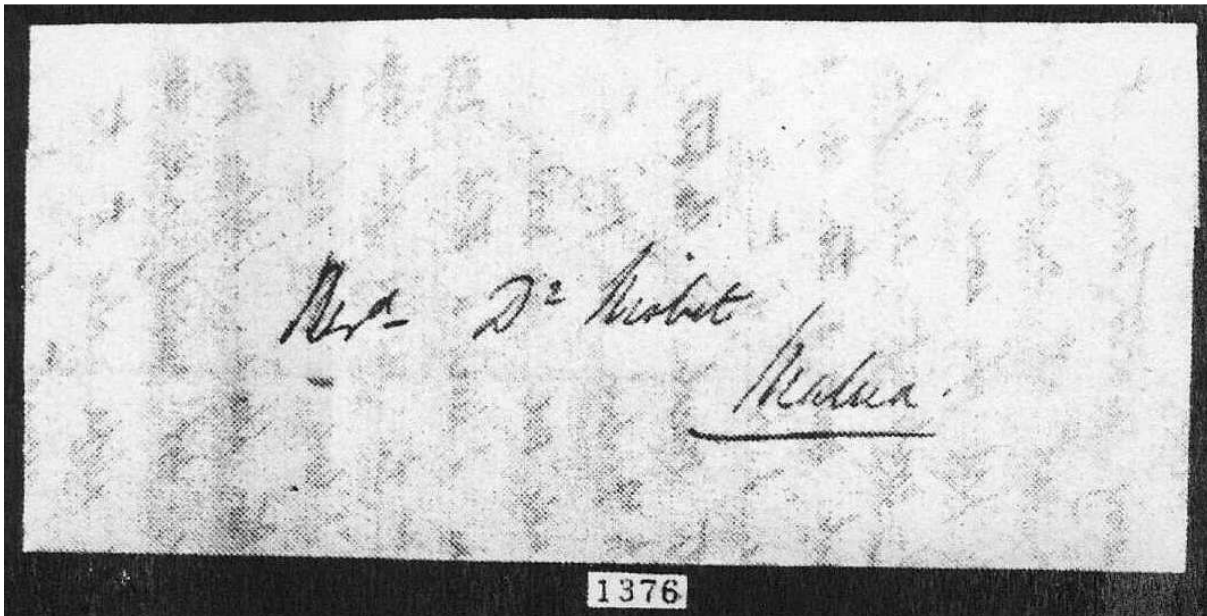 Revd Dr Nisbet
Malua
1376